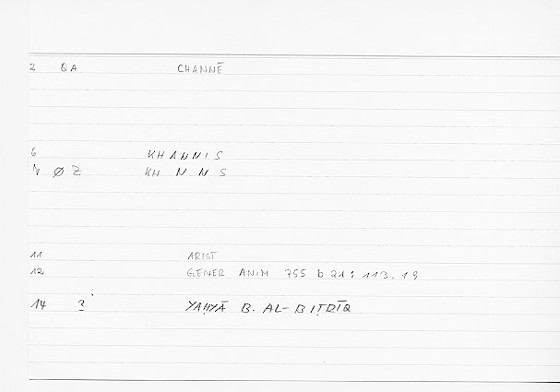 2 QA CHANNĒ
6 KHANNIS
V Ø Z KH N N S
11 ARIST
12 GENER ANIM 755 b 21 : 113, 19
14 ? YAḤYĀ B. AL-BIṬRĪQ